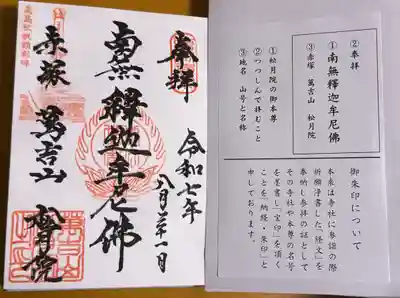 ②奉拝
①南無釋迦牟尼佛
③赤塚 萬吉山 松月院
①松月院の御本尊
②つつしんで拝むこと
③地名 山号と名称
御朱印について
本来は寺社に参詣の際
祈願浄書した「経文」を
奉納し参拝の証として
その寺社や本尊の名号
を墨書し「宝印」を頂く
ことを「納経・朱印」と
申しております。
奉拝
令和七年
八月
南無釋迦牟尼佛
赤塚 萬吉山 松月院